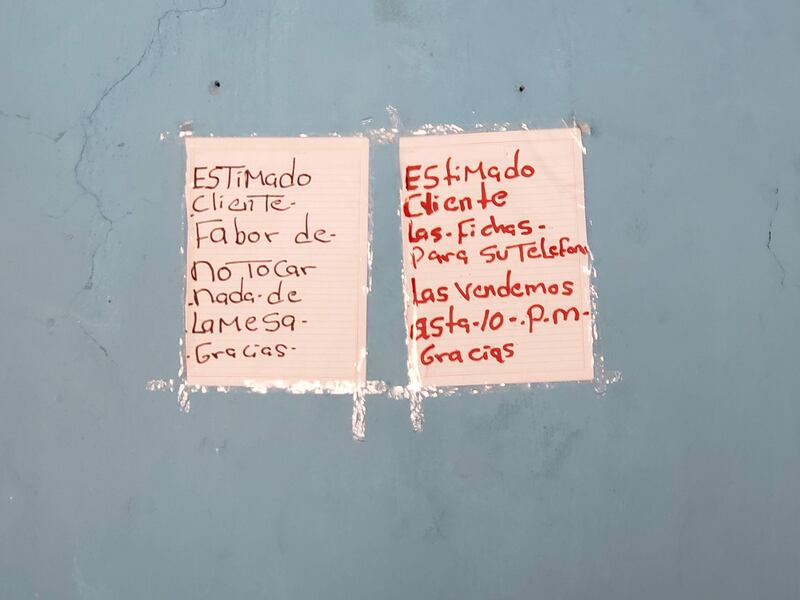 ESTiMado
cliente-
Fabor de-
no Tocar
nada-de
LaMesa-
Gracias-
EStiMado
Cliente
Las-Fichas-
para suTelefono
Las Vendemos
asta-10-.p.m-
Gracias